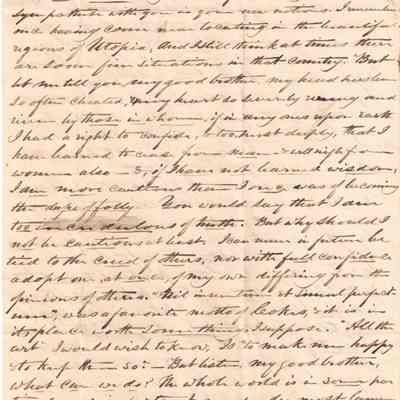 sympathize with you in your
once having come near locating in the beautiful
regions of Utopia, and I still think at times there
are some fine situations in that country. But
let me tell you, my good brother, my head has been
so often cheated, & my heart so severely wrung and
riven by those in whom, if in any ones upon earth
I had a right to confide, & too most deeply, that I
have learned to cease from man & well nigh from
woman also — &, if I have not learned wisdom,
I am more cautious than I once was of becoming
the dupe of folly You would say that I am
too incredulous of truth. But why should I
not be cautious at least. I can never in future be
tied to the creed of others, nor with full confidence
adopt one, at once, of my own differing from the
opinions of others. "Nil inventum et simul perfect-
um", was a favorite motto of Locke's, & it is in
its place worth something I suppose. "All the
art" I would wish to know, Is "to make me happy
& to keep me so." — But listen, my good brother,
What can we do? The whole world is in some par